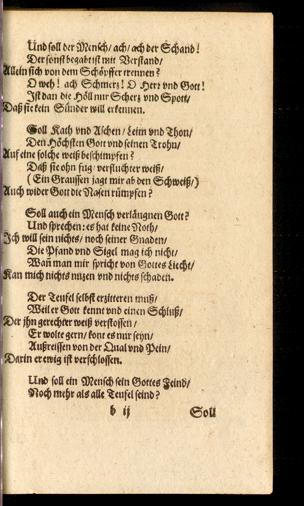 Und soll der Mensch/ ach/ ach der Schand!
Der sonst begabt ist mit Verstand/
Allein sich von dem Schöpffer trennen?
O weh! ach Schmerz! O Herz vnd Gott!
Ist dan die Höll nur Scherz vnd Spott/
Daß sie kein Sünder will erkennen.
Soll Kath vnd Aschen/ Leim vnd Thon/
Den Höchsten Gott vnd seinen Trohn/
Auf eine solche weiß beschimpfen?
Daß sie ohn fug/ verfluchter weiß/
(Ein Graussen jagt mir ab den Schweiß/)
Auch wider Gott die Nasen rümpfen?
Soll auch ein Mensch verläugnen Gott?
Und sprechen: es hat keine Noth/
Ich will sein nichts/ noch seiner Gnaden/
Die Pfand vnd Sigel mag ich nicht/
Wañ man mir spricht von Gottes Liecht/
Kan mich nichts nuzen vnd nichts schaden.
Der Teufel selbst erzitteren muß/
Weil er Gott kennt vnd einen Schluß/
Der jhn gerechter weiß verstossen/
Er wolte gern/ könt es nur seyn/
Außreissen von der Qual vnd Pein/
Darin er ewig ist verschlossen.
Und soll ein Mensch sein Gottes Feind/
Noch mehr als alle Teufel seind?
b ij Soll